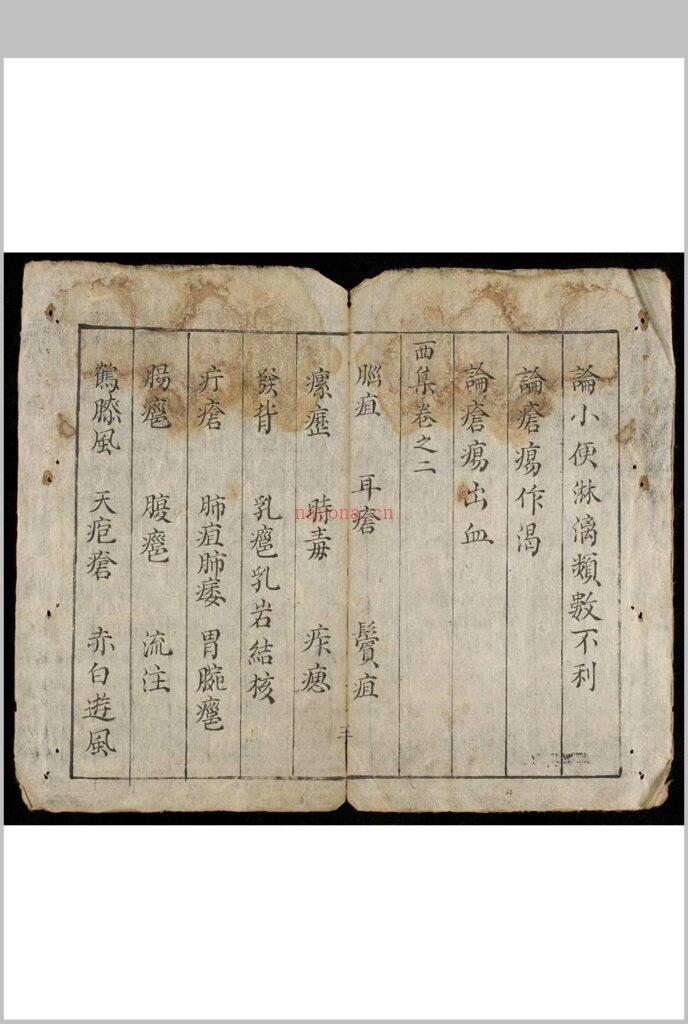 論小便淋漓頻數不利
論瘡瘍作渴
論瘡瘍出血
西集卷之二
腦疽 耳瘡 鬢疽
瘰癧 時毒 痄腮
發背 乳癰乳岩結核
疔瘡 肺疽肺痿 胃脘癰
腸癰 腹癰 流注
鶴膝風 天疱瘡 赤白遊風
najona.cn
4